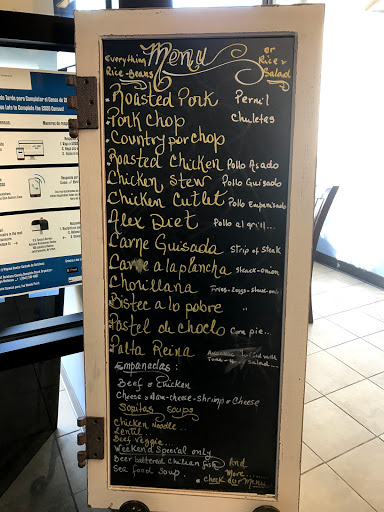 Menu
everything
Rice-Beans
or
Rice &
Salad
Roasted Pork Pernil
Pork Chop Chuletas
Country porchop
Roasted Chicken Pollo Asado
Chicken Stew Pollo Guisado
Chicken Cutlet Pollo Empanisado
Alex Diet Pollo al grill...
Carne Guisada strip of steak
Carne a la plancha steack-onion
Chorillana Fries-Eggs-steak-onion
Bistec a lo pobre "
Pastel de choclo Corn pie...
Palta Reina Avocado
Tuna Salad...
Empanadas:
Beef & Chicken
Cheese & Ham-cheese-shrimp & Cheese
Sopitas Soups
Chicken Noodle...
Lentil
Beef, Veggie...
Weekend Special only
Beer battered Chilean fish And
Sea food Soup. More...
check our Menu